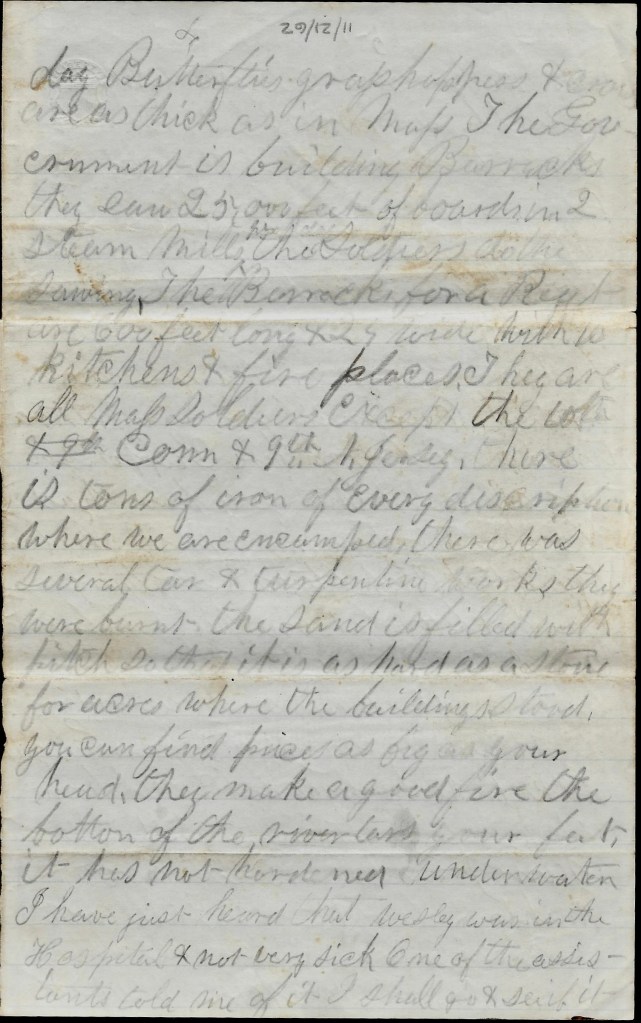 29/12/11
day Butterflies grashoppess &
are as thick as in Mass The Gov-
ernment is building Barracks
they saw 25,000 feet of boards in 2
steam Mills, the Soldiers do the
sawing, The Barracks for a Regt
are 600 feet long & 25 wide with 10
kitchens & fire places. They are
all Mass soldiers Except the 10th
& 9th Conn & 9th N. Jersey, there
is tons of iron of Every discription
where we are encamped, there was
several tar & turpentine works they
were burnt the sand is filled with
pitch so that it is as hard as a stone
for acres where the buildings stood,
you can find pieces as big as your
head, they make a good fire the
botton of the river tars your feet,
it has not hardened under water
I have just heard that Wesley was in the
Hospital & not very sick One of the assis-
tants told me of it I shall go & see if it